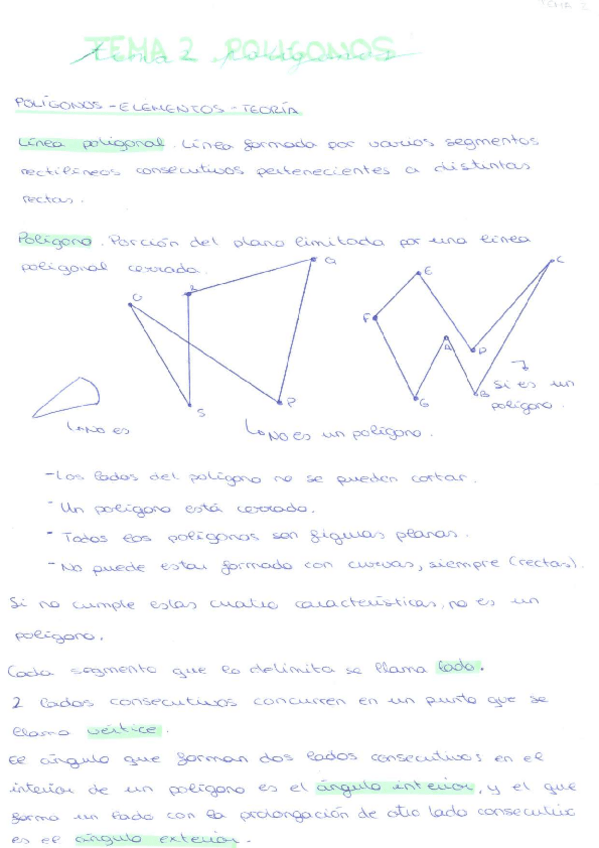 TEMA 2
TEMA 2 POLÍGONOS
POLÍGONOS - ELEMENTOS - TEORÍA
Línea poligonal. Línea formada por varios segmentos
rectilíneos consecutivos pertenecientes a distintas
rectas.
Polígono. Porción del plano limitada por una línea
poligonal cerrada.
Q
C
E
O
R
F
A
D
B
S
P
G
Si es un
polígono.
No es
No es un polígono.
- Los lados del polígono no se pueden cortar.
- Un polígono está cerrado.
- Todos los polígonos son figuras planas.
- No puede estar formado con curvas, siempre (rectas).
Si no cumple estas cuatro características, no es un
polígono.
Cada segmento que lo delimita se llama lado.
2 lados consecutivos concurren en un punto que se
llama vértice.
El ángulo que forman dos lados consecutivos en el
interior de un polígono es el ángulo interior, y el que
forma un lado con la prolongación de otro lado consecutivo
es el ángulo exterior.